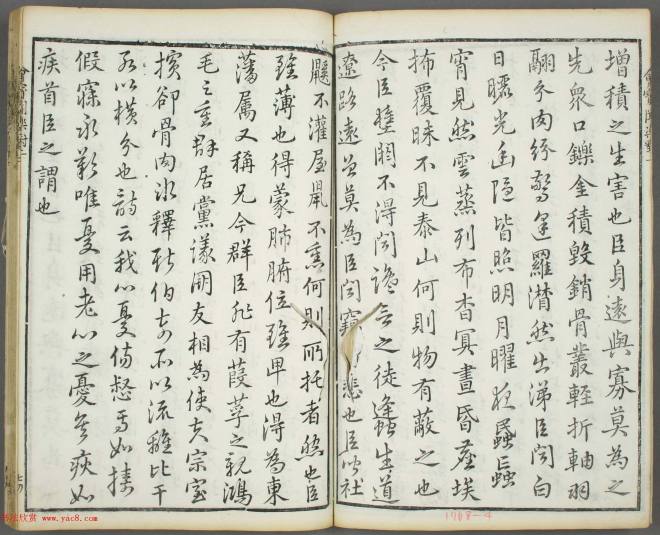 增積之生害也臣身遠與寡莫為之
先衆口鑠金積毀銷骨叢輕折軸羽
翮飛肉紛驚逢羅潸然出涕臣聞白
日曬光幽隱皆照明月曜夜蟁蝱
宵見然雲蒸列布杳冥晝昏塵埃
抪覆昧不見泰山何則物有蔽之也
今臣壅閼不得聞讒言之徒蠭生道
遼路遠曾莫為臣聞竊悲也臣聞社
鼷不灌屋鼠不熏何則所托者然也臣
雖薄也得蒙肺腑位雖卑也得為東
藩屬又稱兄今群臣非有葭莩之親鴻
毛之重群居黨議朋友相為使夫宗室
擯卻骨肉冰釋斯伯奇所以流離比干
所以橫分也詩云我心憂傷惄焉如擣
假寐永歎唯憂用老心之憂矣疢如
疾首臣之謂也
1908-4
书法欣赏 www.yac8.com